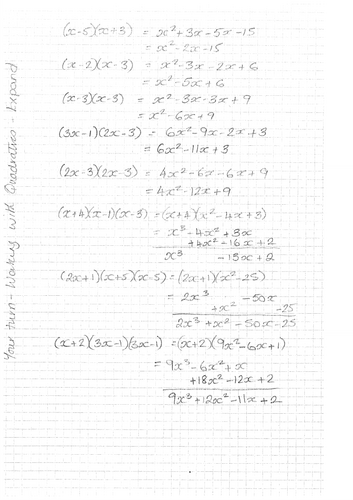 Your turn - Working with Quadratics - Expand
(x-5)(x+3) = x² + 3x - 5x - 15
= x² - 2x - 15
(x-2)(x-3) = x² - 3x - 2x + 6
= x² - 5x + 6
(x-3)(x-3) = x² - 3x - 3x + 9
= x² - 6x + 9
(3x-1)(2x-3) = 6x² - 9x - 2x + 3
= 6x² - 11x + 3
(2x-3)(2x-3) = 4x² - 6x - 6x + 9
= 4x² - 12x + 9
(x+4)(x-1)(x-3) = (x+4)(x² - 4x + 3)
= x³ - 4x² + 3x
+4x² - 16x + 2
x³ - 13x + 2
(2x+1)(x+5)(x-5) = (2x+1)(x² - 25)
= 2x³ - 50x
+x² - 25
2x³ + x² - 50x - 25
(x+2)(3x-1)(3x-1) = (x+2)(9x² - 6x + 1)
= 9x³ - 6x² + x
+18x² - 12x + 2
9x³ + 12x² - 11x + 2